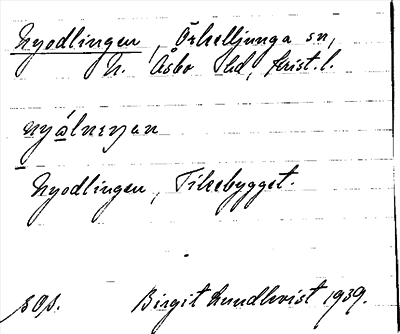 Nyodlingen, Örkelljunga sn,
N. Åsbo hd, Krist. l.
nyålneŋan
Nyodlingen, Tilkebygget.
s Og. Birgit Lundkvist 1939.